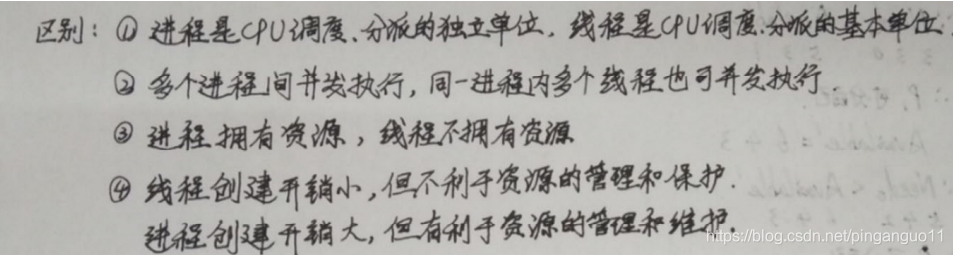 区别：① 进程是CPU调度、分派的独立单位，线程是CPU调度、分派的基本单位.
② 多个进程间并发执行，同一进程内多个线程也可并发执行
③ 进程拥有资源，线程不拥有资源
④ 线程创建开销小，但不利于资源的管理和保护.
进程创建开销大，但有利于资源的管理和维护.
https://blog.csdn.net/pinganguo11